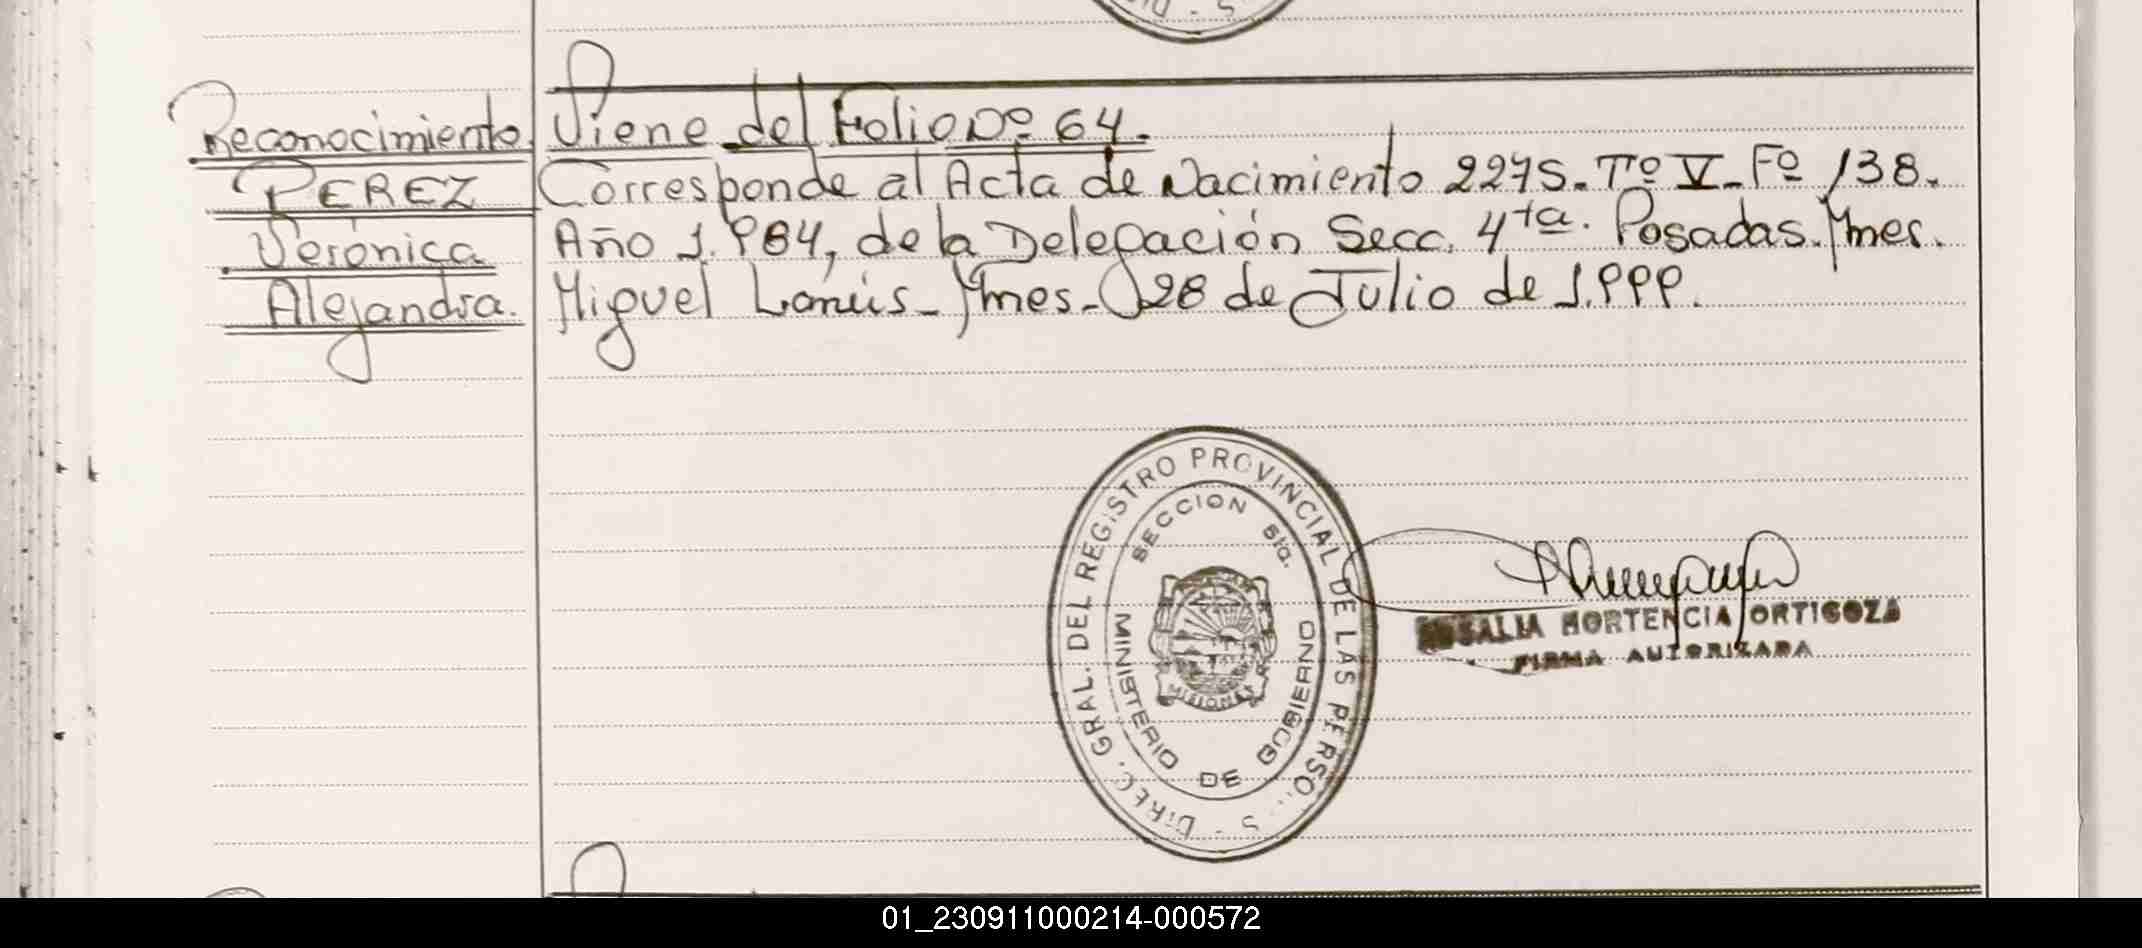 Reconocimiento
PEREZ
Verónica
Alejandra.
Viene del Folio Nº 64.
Corresponde al Acta de Nacimiento 2275. Tº V. Fº 138.
Año 1.984, de la Delegación Secc. 4ta. Posadas. Mnes.
Miguel Lanús - Mnes - 28 de Julio de 1.999.
DIREC. GRAL. DEL REGISTRO PROVINCIAL DE LAS PERSO
SECCION
MINISTERIO DE GOBIERNO
MISIONES
ROSALIA HORTENCIA ORTIGOZA
FIRMA AUTORIZADA
01_230911000214-000572